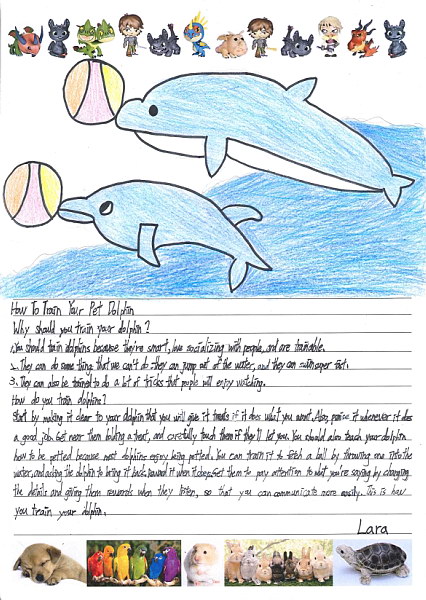 How To Train Your Pet Dolphin
Why should you train your dolphin?
1. You should train dolphins because they're smart, love socializing with people, and are trainable.
2. They can do some thing that we can't do: they can jump out of the water, and they can swim super fast.
3. They can also be trained to do a lot of tricks that people will enjoy watching.
How do you train dolphins?
Start by making it clear to your dolphin that you will give it treats if it does what you want. Also, praise it whenever it does
a good job. Get near them holding a treat, and carefully touch them if they'll let you. You should also teach your dolphin
how to be petted because most dolphins enjoy being petted. You can train it to fetch a ball by throwing one into the
water, and asking the dolphin to bring it back. Reward it when it does. Get them to pay attention to what you're saying by changing
the details and giving them rewards when they listen, so that you can communicate more easily. This is how
you train your dolphin.
Lara